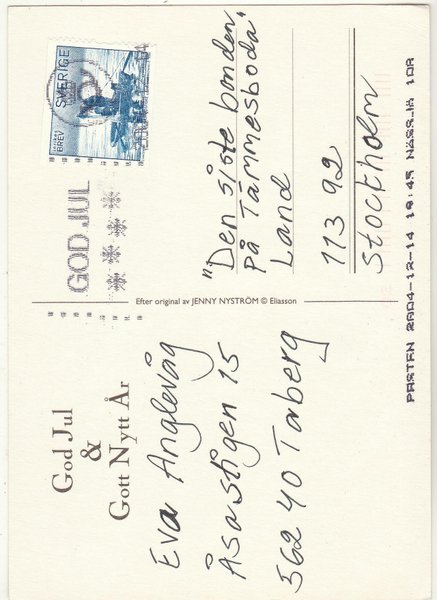 God Jul
&
Gott Nytt År
Eva Anglevåg
Åsastigen 15
562 40 Taberg
Efter original av JENNY NYSTRÖM © Eliasson
GOD JUL
BREV
SVERIGE
"Den siste bonden
på Tämmesboda"
Land
113 92
Stockholm
POSTEN 2004-12-14 18:45 NÄSSJÖ